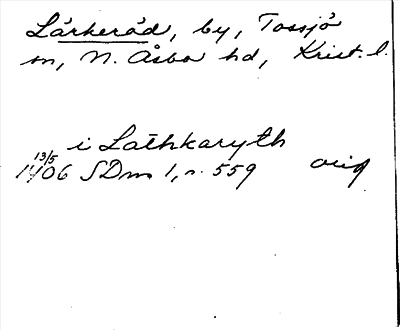 Lärkeröd, by, Tossjö
sn, N. Åsbo hd, Krist. l.
i Lathkaryth
13/5
1406 SDns 1, n. 559 orig